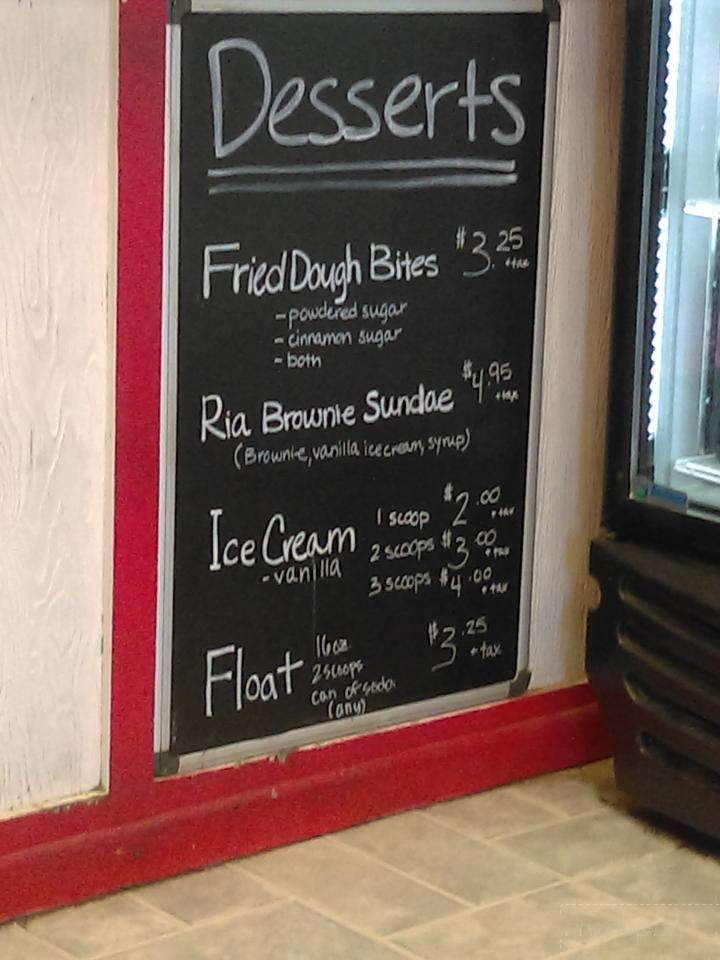 Desserts
Fried Dough Bites $3.25 +tax
- powdered sugar
- cinnamon sugar
- both
Ria Brownie Sundae $4.95 +tax
(Brownie, vanilla ice cream, syrup)
Ice Cream 1 scoop $2.00 +tax
- vanilla 2 scoops $3.00 +tax
3 scoops $4.00 +tax
Float 16oz. $3.25 +tax
2 scoops
can of soda
(any)